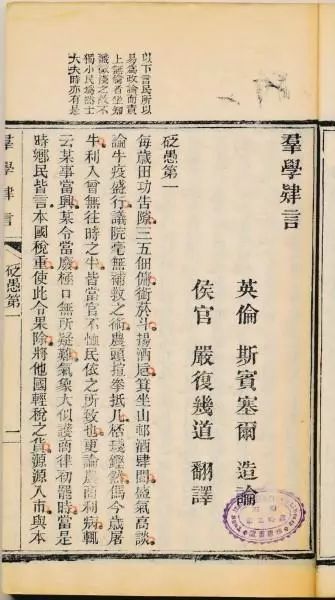 羣學肄言
英倫 斯賓塞爾 造論
侯官 嚴復幾道 翻譯
砭愚第一
以下言民所以
易爲政論而責
上無論者坐知
識微淺之故不
獨小民爲然士
大夫時亦有是
每歲田功告隙三五佃傭銜菸斗揚酒卮箕坐山邨酒肆間盛氣高談
論牛疫盛行議院毫無補救之術農頭揎拳抵几桮棬鏗然偶今歲屠
牛利人曾無往時之牛皆當官不恤民依之所致也更論農商利病輒
云某事當興某令當廢極口無所疑難氣象大似護商律初罷時當是
時鄉民皆言本國稅重使此令果除將他國輕稅之貨源源入市與本
羣學肄言
砭愚第一